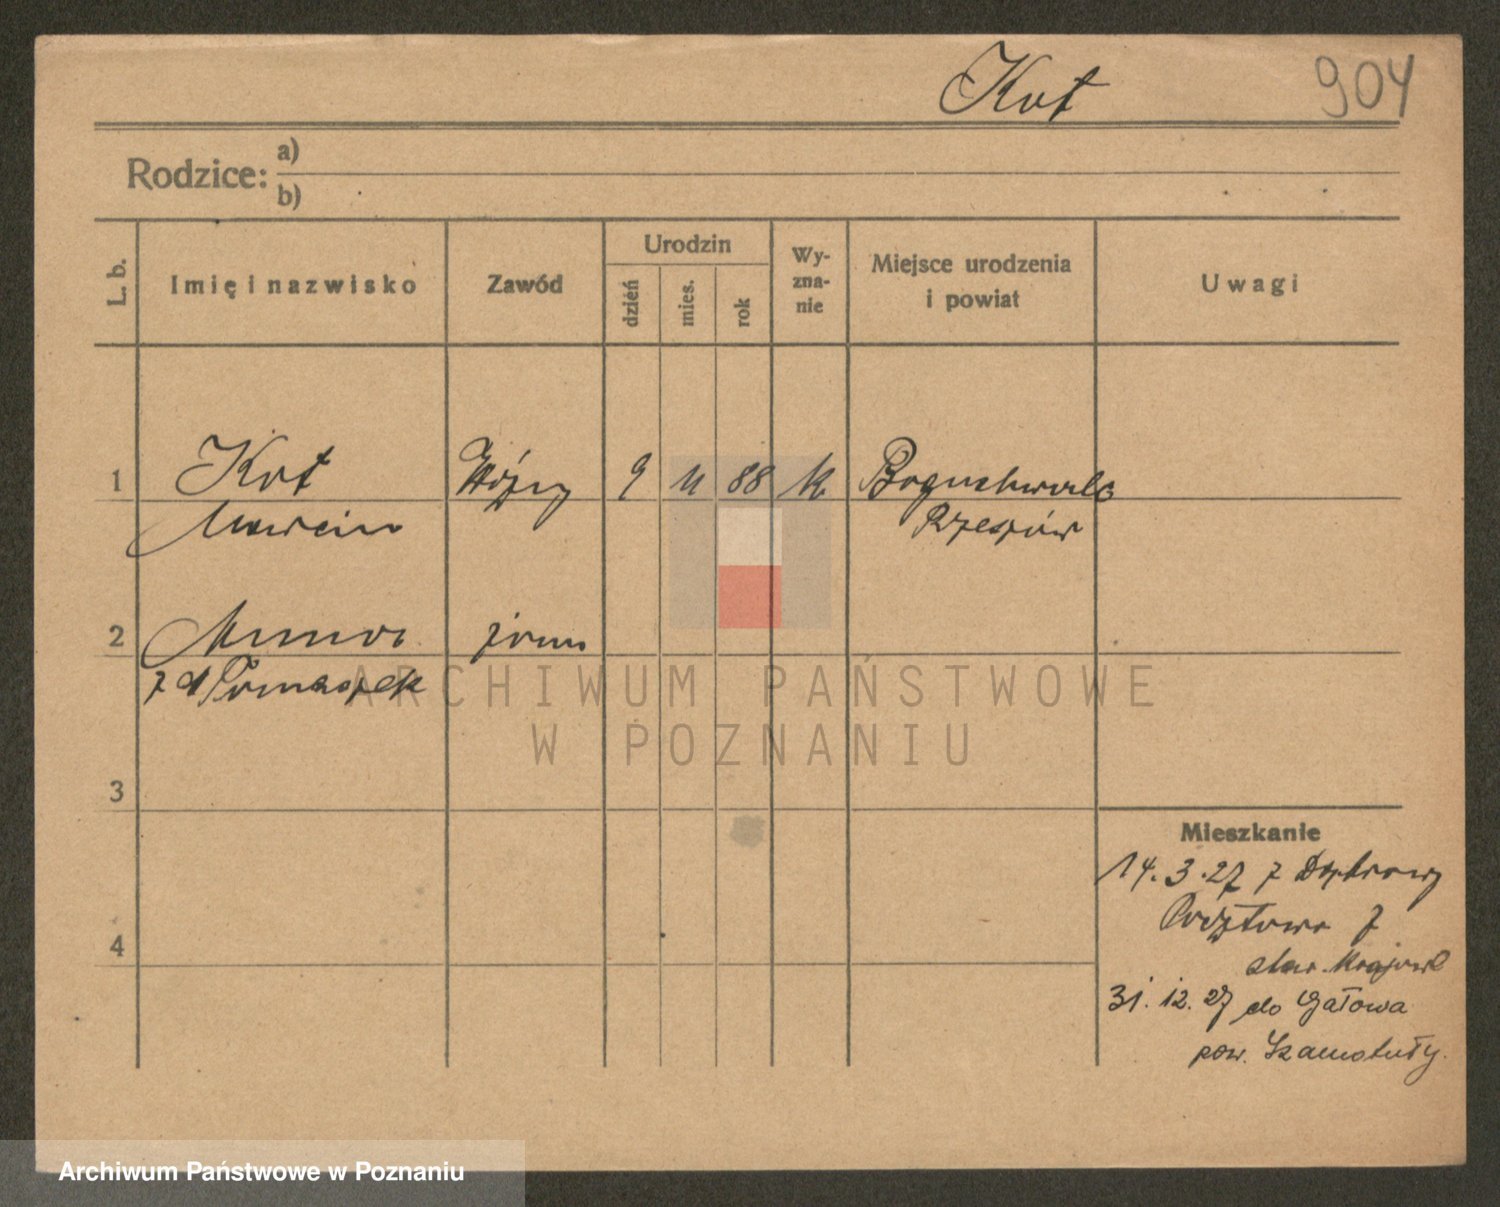 Kot 904
Rodzice: a)
b)
L. b. Imię i nazwisko Zawód Urodzin dzień mies. rok Wy-zna-nie Miejsce urodzenia i powiat Uwagi
1 Kot 9 11 88 k
Marcin Rzeszów
2 żona
z d
ARCHIWUM PAŃSTWOWE
W POZNANIU
3
Mieszkanie
14.3.27 z Dąbrowy
Pocztowa 7
4
31.12.27 do Gałowa
pow. Szamotuły.
Archiwum Państwowe w Poznaniu